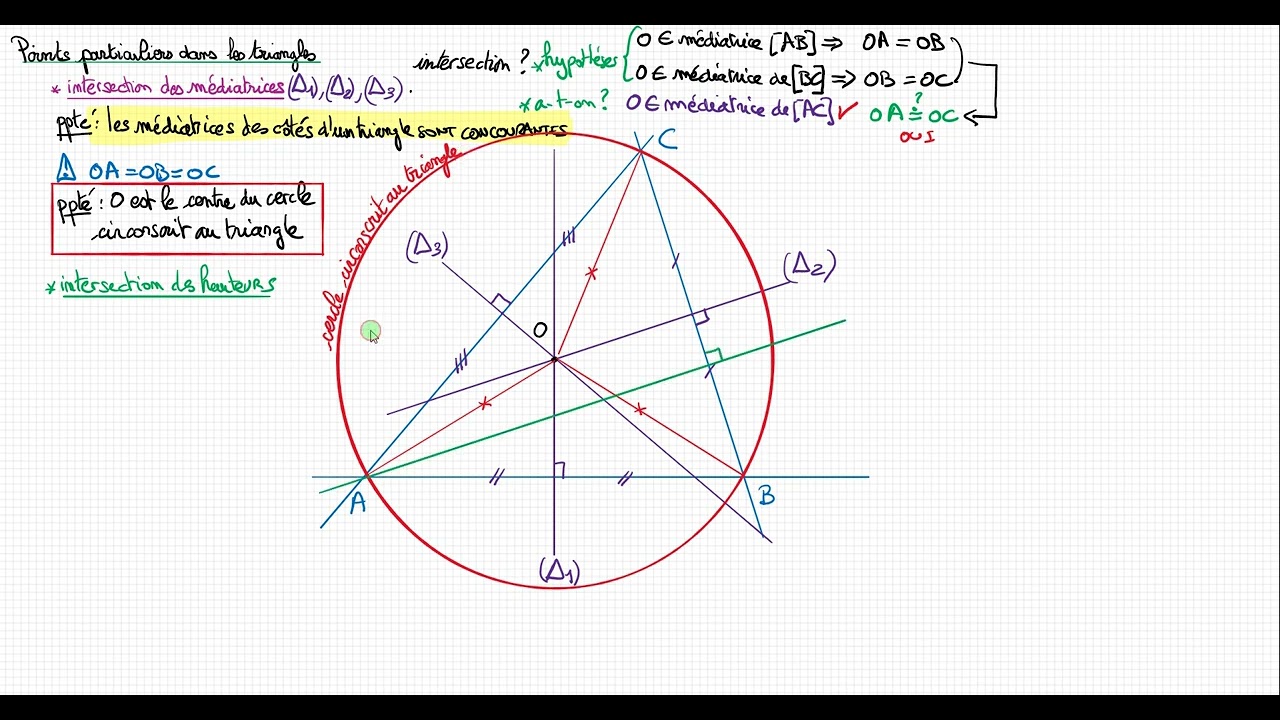 Points particuliers dans les triangles
* intersection des médiatrices (Δ1), (Δ2), (Δ3).
ppté : les médiatrices des côtés d'un triangle SONT CONCOURANTES
⚠ OA = OB = OC
ppté : O est le centre du cercle
circonscrit au triangle
* intersection des hauteurs
intersection ? * hypothéses
O ∈ médiatrice [AB] ⇒ OA = OB
O ∈ médiatrice de [BC] ⇒ OB = OC
* a-t-on ? O ∈ médiatrice de [AC] ✓ OA ≟ OC
OUI
cercle circonscrit au triangle
C
(Δ3)
(Δ2)
O
A
B
(Δ1)